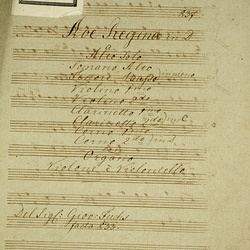 237
Ave Regina in D
Alto Solo
Soprano Alto
Tenore Basso
Violino 1mo
Violino 2do
Clarinetto 1mo
Clarinetto 2do in C
Corno 1mo
Corno 2do in D
Organo
Violone e Violoncello
Del Sigr: Giov: Fuchs